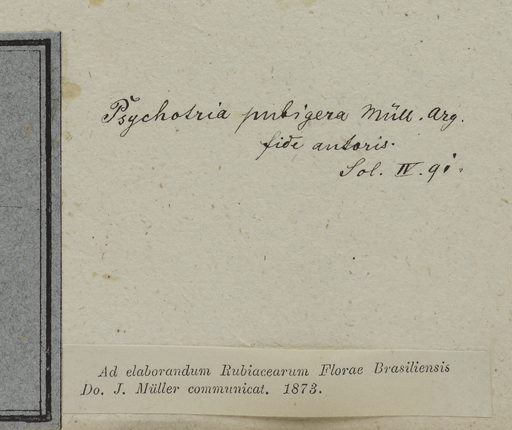 Psychotria pubigera Müll. Arg.
fide autoris.
Sol. IV. 91.
Ad elaborandum Rubiacearum Florae Brasiliensis
Do. J. Müller communicat. 1873.